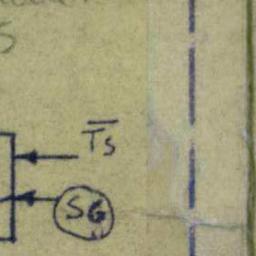 5
T̅s
SG